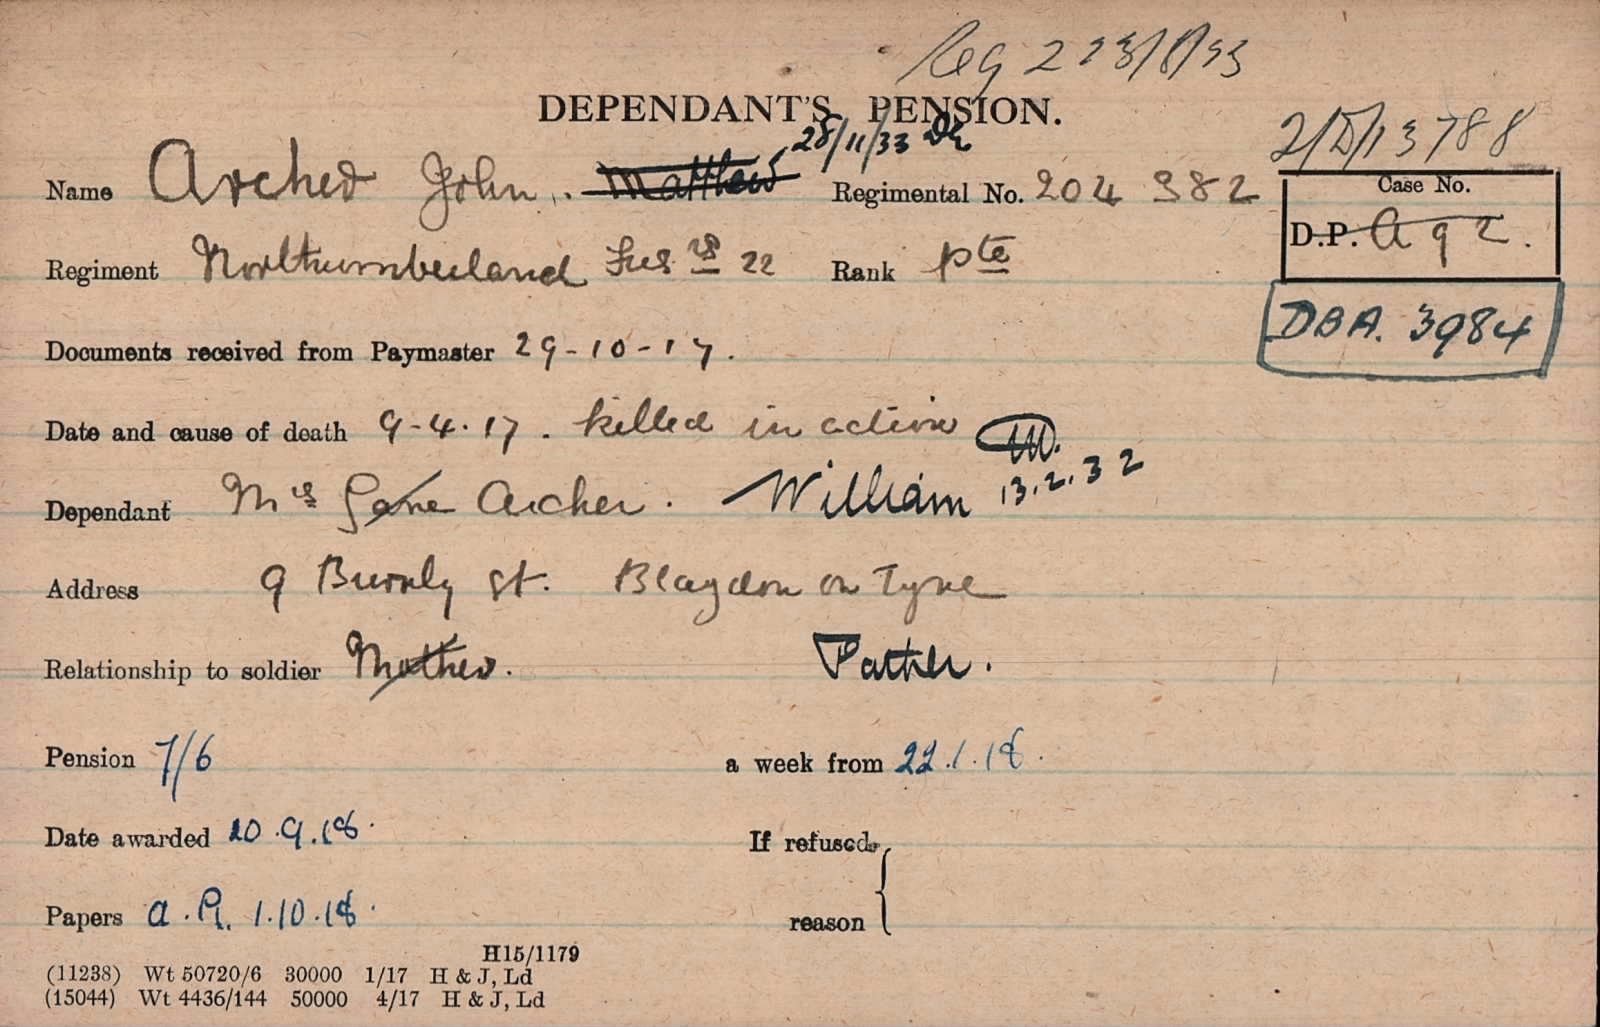 Reg 2 23/8/33
DEPENDANT'S PENSION.
28/11/33
2/D/13788
Name Archer John. Matthew Regimental No. 204 382
Case No.
D.P. A 92.
Regiment Northumberland Fus rs 22 Rank pte
DBA. 3984
Documents received from Paymaster 29-10-17.
Date and cause of death 9-4-17. killed in action
Dependant Mrs Jane Archer. William 13.2.32
Address 9 Burnly St. Blaydon on Tyne
Relationship to soldier Mother. Father.
Pension 7/6 a week from 22.1.18.
Date awarded 20.9.18. If refused
Papers a.R. 1.10.18. reason
H15/1179
(11238) Wt 50720/6 30000 1/17 H & J, Ld
(15044) Wt 4436/144 50000 4/17 H & J, Ld